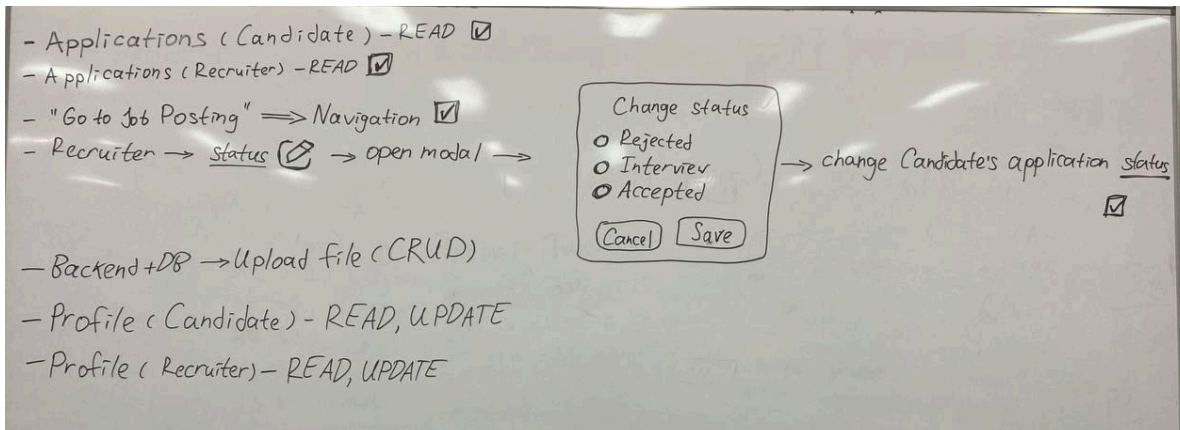 - Applications (Candidate) - READ ☑
- Applications (Recruiter) - READ ☑
- "Go to Job Posting" ⟹ Navigation ☑
- Recruiter → status → open modal →
Change status
○ Rejected
○ Interview
○ Accepted
Cancel Save
→ change Candidate's application status
☑
- Backend + DB → Upload file (CRUD)
- Profile (Candidate) - READ, UPDATE
- Profile (Recruiter) - READ, UPDATE